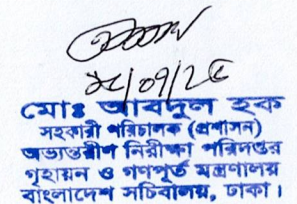 মোঃ আবদুল হক
সহকারী পরিচালক (প্রশাসন)
অভ্যন্তরীণ নিরীক্ষা পরিদপ্তর
গৃহায়ন ও গণপূর্ত মন্ত্রণালয়
বাংলাদেশ সচিবালয়, ঢাকা।